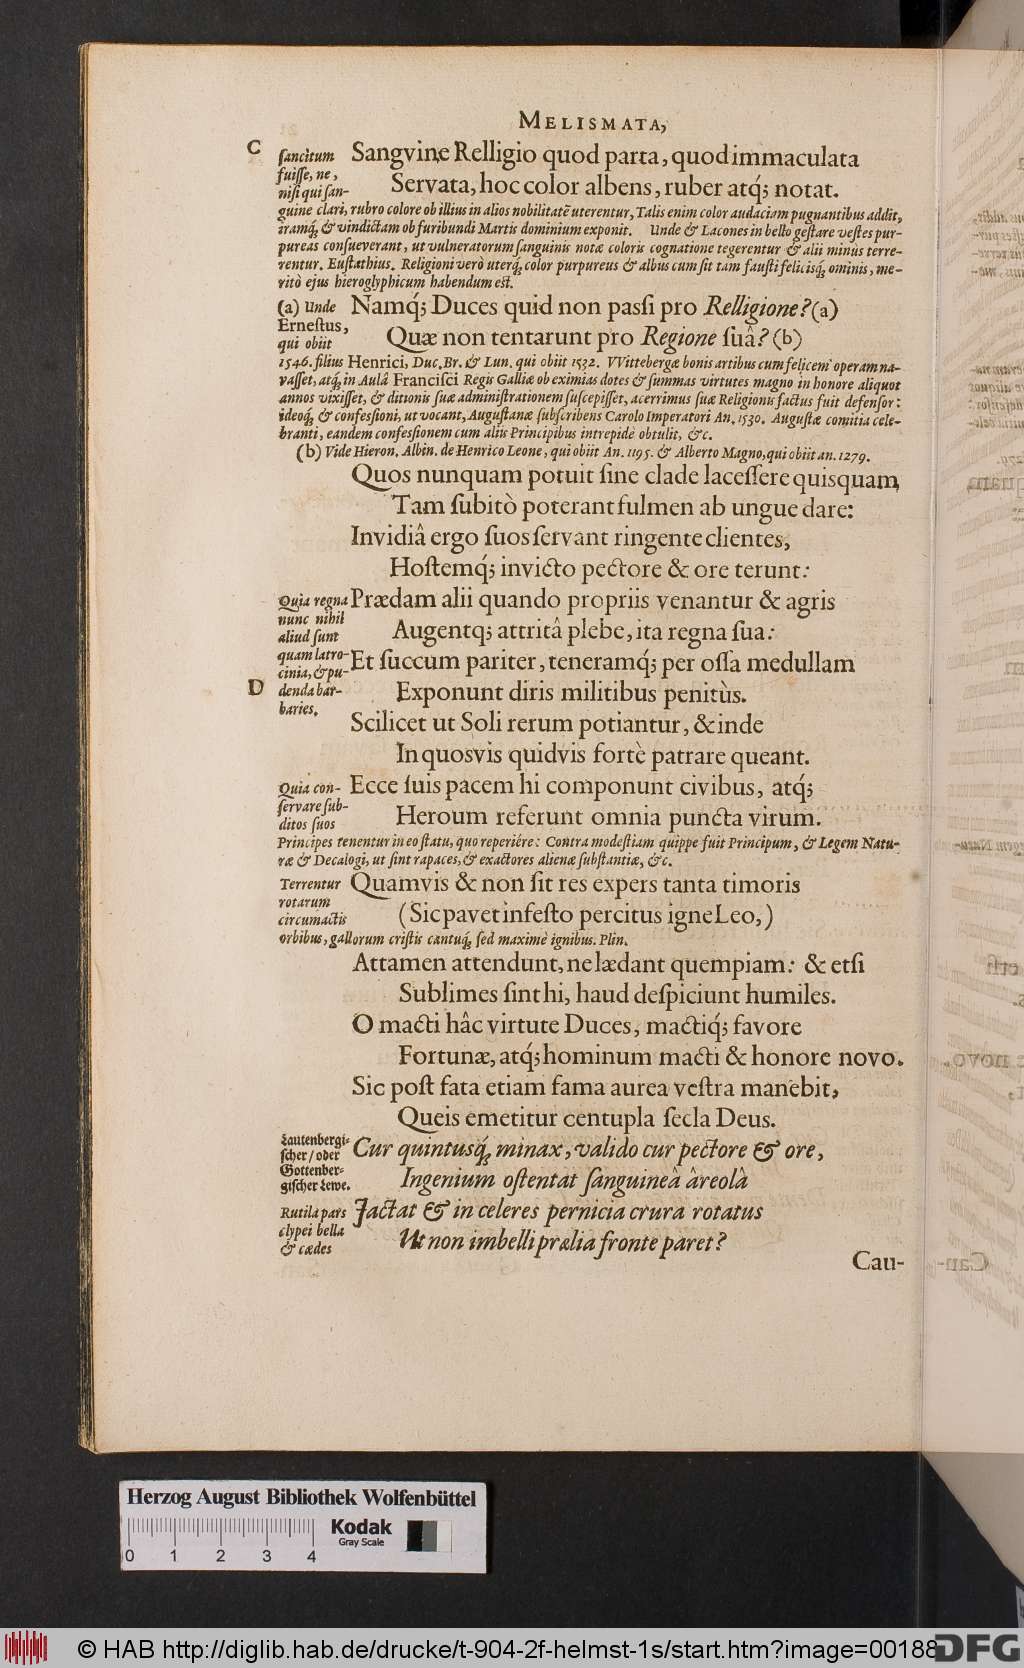 MELISMATA,
C
ſancitum
fuiſſe, ne,
niſi qui ſan-
Sangvine Relligio quod parta, quod immaculata
Servata, hoc color albens, ruber atq; notat.
guine clari, rubro colore ob illius in alios nobilitatē uterentur, Talis enim color audaciam pugnantibus addit,
iramq́; & vindictam ob furibundi Martis dominium exponit. Unde & Lacones in bello geſtare veſtes pur-
pureas conſueverant, ut vulneratorum ſanguinis notæ coloris cognatione tegerentur & alii minùs terre-
rentur. Euſtathius. Religioni verò uterq́; color purpureus & albus cum ſit tam fauſti felicisq́; ominis, me-
ritò ejus hieroglyphicum habendum eſt.
(a) Unde
Erneſtus,
qui obiit
Namq́; Duces quid non paſſi pro Relligione? (a)
Quæ non tentarunt pro Regione ſuâ? (b)
1546. filius Henrici, Duc. Br. & Lun. qui obiit 1532. VVittebergæ bonis artibus cum felicem operam na-
vaſſet, atq́; in Aulâ Franciſci Regis Galliæ ob eximias dotes & ſummas virtutes magno in honore aliquot
annos vixiſſet, & ditionis ſuæ adminiſtrationem ſuſcepiſſet, acerrimus ſuæ Religionis factus fuit defenſor:
ideoq́; & confeſſioni, ut vocant, Auguſtanæ ſubſcribens Carolo Imperatori An. 1530. Auguſtæ comitia cele-
branti, eandem confeſſionem cum aliis Principibus intrepidè obtulit, &c.
(b) Vide Hieron. Albin. de Henrico Leone, qui obiit An. 1195. & Alberto Magno, qui obiit an. 1279.
Quos nunquam potuit ſine clade laceſſere quisquam,
Tam ſubitò poterant fulmen ab ungue dare:
Invidiâ ergo ſuos ſervant ringente clientes,
Hoſtemq́; invicto pectore & ore terunt:
Quia regna
nunc nihil
aliud ſunt
quam latro-
cinia, & pu-
denda bar-
baries.
Prædam alii quando propriis venantur & agris
Augentq; attritâ plebe, ita regna ſua:
Et ſuccum pariter, teneramq́; per oſſa medullam
D
Exponunt diris militibus penitùs.
Scilicet ut Soli rerum potiantur, & inde
In quosvis quidvis fortè patrare queant.
Quia con-
ſervare ſub-
ditos ſuos
Ecce ſuis pacem hi componunt civibus, atq́;
Heroum referunt omnia puncta virum.
Principes tenentur in eo ſtatu, quo reperiére: Contra modeſtiam quippe fuit Principum, & Legem Natu-
ræ & Decalogi, ut ſint rapaces, & exactores alienæ ſubſtantiæ, &c.
Terrentur
rotarum
circumactis
Quamvis & non ſit res expers tanta timoris
(Sic pavet infeſto percitus igne Leo,)
orbibus, gallorum criſtis cantuq́; ſed maximè ignibus. Plin.
Attamen attendunt, ne lædant quempiam: & etſi
Sublimes ſint hi, haud deſpiciunt humiles.
O macti hâc virtute Duces, mactiq́; favore
Fortunæ, atq́; hominum macti & honore novo.
Sic poſt fata etiam fama aurea veſtra manebit,
Queis emetitur centupla ſecla Deus.
Lautenbergi-
ſcher / oder
Gottenber-
giſcher Lewe.
Cur quintusq́; minax, valido cur pectore & ore,
Ingenium oſtentat ſanguineâ âreolâ
Rutila pars
clypei bella
& cædes
Jactat & in celeres pernicia crura rotatus
Ut non imbelli prælia fronte paret?
Cau-
Herzog August Bibliothek Wolfenbüttel
0 1 2 3 4
Kodak
Gray Scale
© HAB http://diglib.hab.de/drucke/t-904-2f-helmst-1s/start.htm?image=00188
DFG